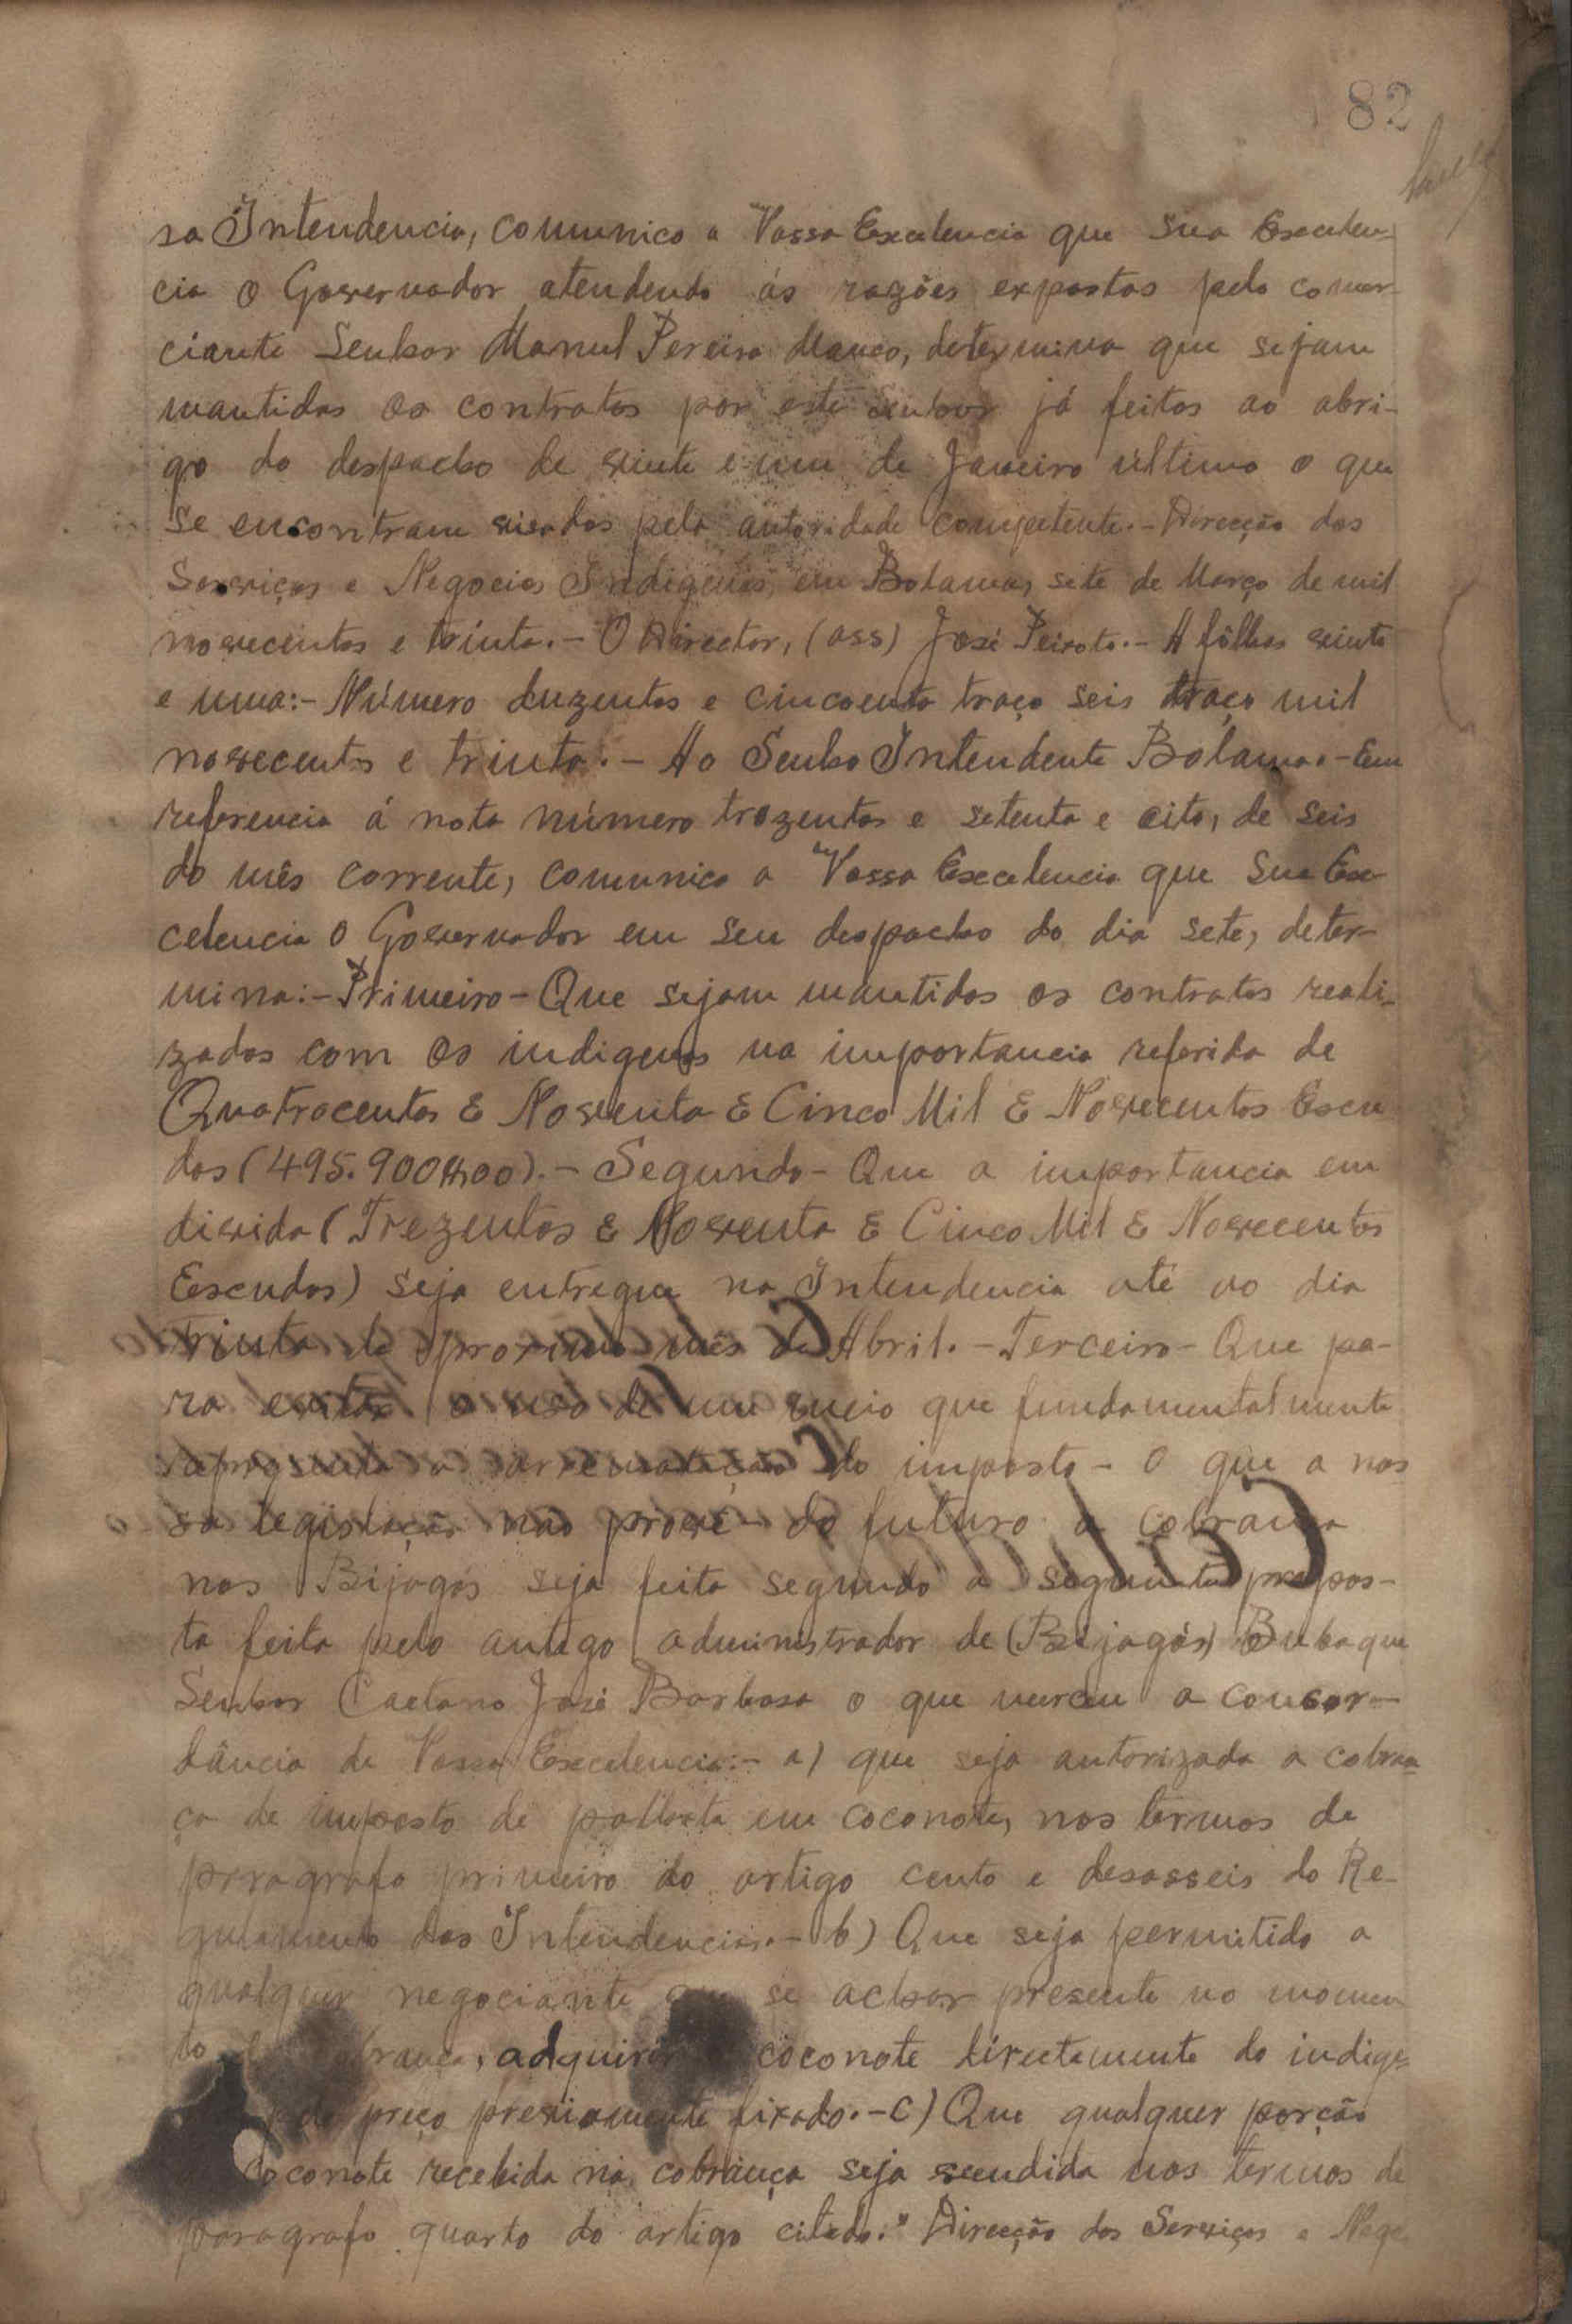 82
sa Intendencia, comunico a Vossa Excelencia que Sua Excelen-
cia O Governador atendendo ás razões expostas pelo comer-
ciante Senhor Manuel Pereira Manco, determina que sejam
mantidos os contratos por este Senhor já feitos ao abri-
go do despacho de vinte e um de Janeiro ultimo o que
se encontram visados pela autoridade competente.- Direcção dos
Serviços e Negocios Indigenas, em Bolama, sete de Março de mil
novecentos e trinta.- O Director, (ass) José Peixoto.- A fôlhas vinte
e uma:- Número duzentos e cincoenta traço seis traço mil
novecentos e trinta.- Ao Senho Intendente Bolama.- Em
referencia á nota número trezentos e setenta e oito, de seis
do mês corrente, comunico a Vossa Excelencia que Sua Exe-
celencia O Governador em seu despacho do dia sete, deter-
mina:- Primeiro- Que sejam mantidos os contratos reali-
zados com os indigenas na importancia referida de
Quatrocentos E Noventa E Cinco Mil E Novecentos Escu
dos (495.900$00).- Segundo- Que a importancia em
divida (Trezentos E Noventa E Cinco Mil E Novecentos
Escudos) seja entregue na Intendencia até ao dia
trinta do proximo mês de Abril.- Terceiro- Que pa-
ra evitar o uso de um meio que fundamentalmente
representa a arrematação do imposto- O que a nos
sa legislação não prevê- do futuro a cobrança
nos Bijagós seja feita segundo a seguinte propos-
ta feita pelo antigo administrador de (Bijagós) Bubaque
Senhor Caetano José Barbosa o que mereceu a concor-
dância de Vossa Excelencia:- a) que seja autorizada a cobran
ça de imposto de palhota em coconote, nos termos do
paragrafo primeiro do artigo cento e desasseis do Re-
gulamento das Intendencias.- b) Que seja permitido a
qualquer negociante que se achar presente no momen
to brança, adquirir coconote directamente do indige-
pelo preço previamente fixado.- c) Que qualquer porção
coconote recebida na cobrança seja vendida nos termos do
paragrafo quarto do artigo citado." Direcção dos Serviços e Nego